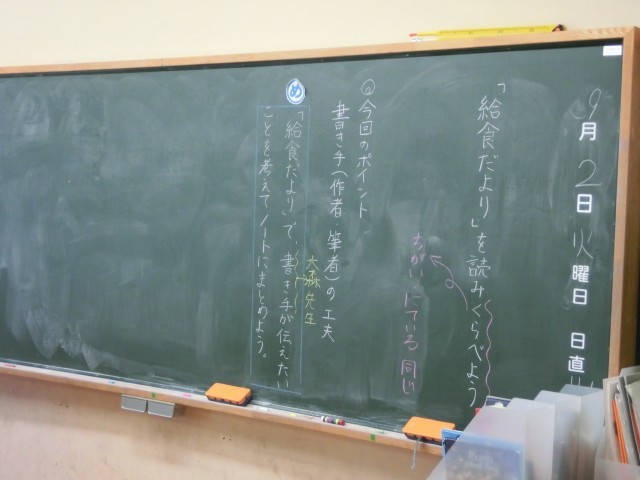 9月2日火曜日 日直
「給食だより」を読みくらべよう
ちがい にている 同じ
◎今回のポイント
書き手(作者・筆者)の工夫
大森先生
め
「給食だより」で、書き手が伝えたい
ことを考えてノートにまとめよう。